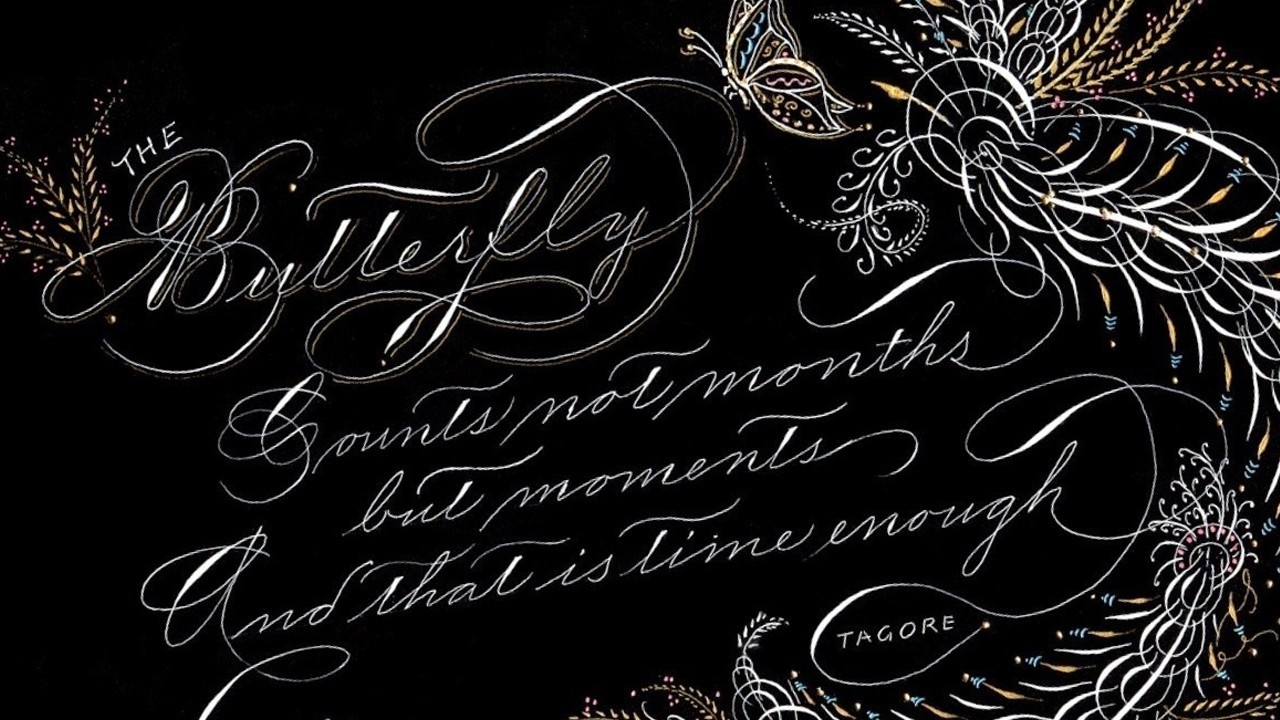 THE
Butterfly
Counts not months
but moments
And that is time enough
TAGORE